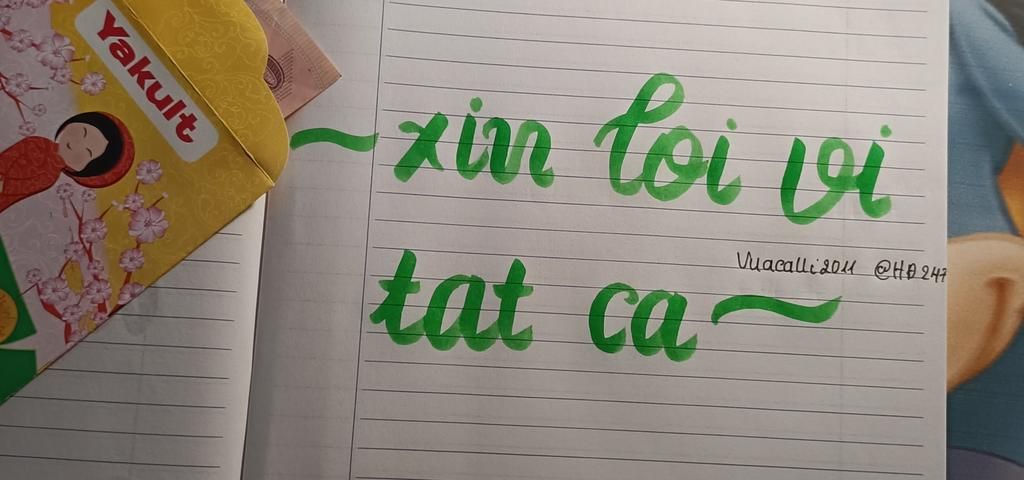 Yakult
~ xin loi vi
tat ca ~
Vuacalli2011 @HĐ247